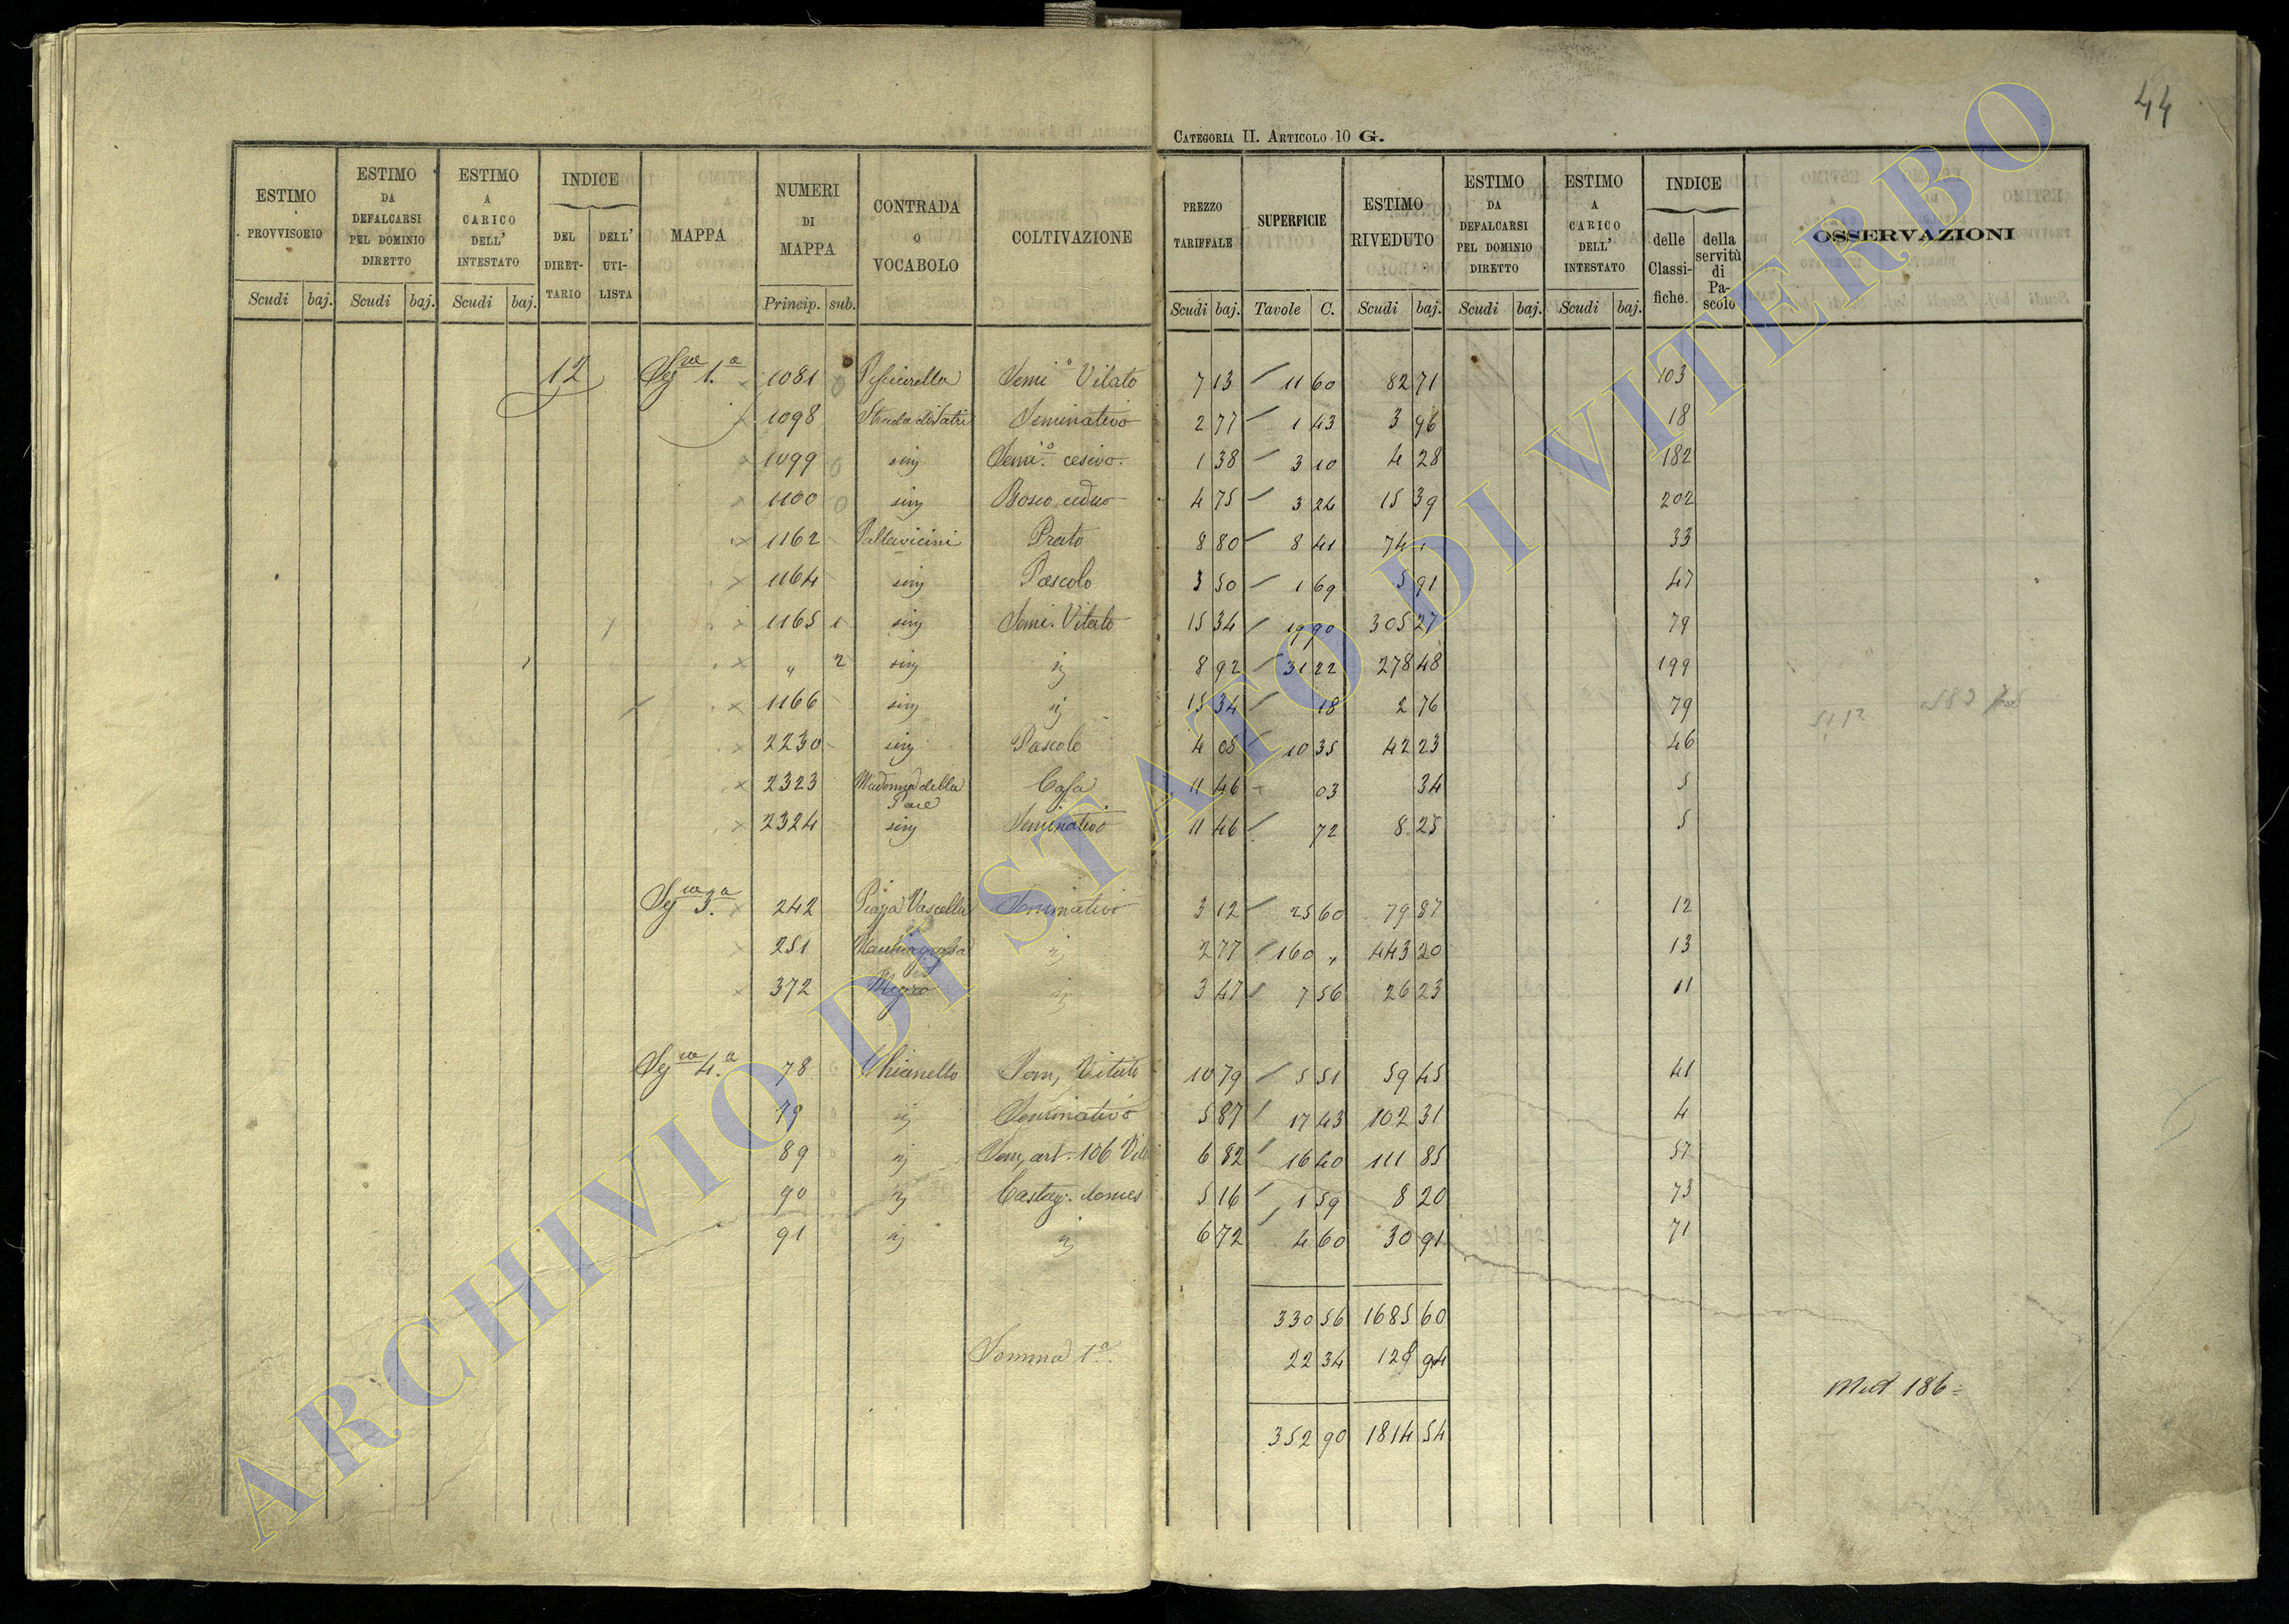 44
CATEGORIA II. ARTICOLO 10 G.
ESTIMO PROVVISORIO | ESTIMO DA DEFALCARSI PEL DOMINIO DIRETTO | ESTIMO A CARICO DELL' INTESTATO | INDICE DEL DIRETTARIO | DELL' UTILISTA | MAPPA | NUMERI DI MAPPA | CONTRADA O VOCABOLO | COLTIVAZIONE | PREZZO TARIFFALE | SUPERFICIE | ESTIMO RIVEDUTO | ESTIMO DA DEFALCARSI PEL DOMINIO DIRETTO | ESTIMO A CARICO DELL' INTESTATO | INDICE delle Classifiche. | della servitù di Pascolo | OSSERVAZIONI
Scudi baj. | Scudi baj. | Scudi baj. | Princip. sub. | Scudi baj. | Tavole C. | Scudi baj. | Scudi baj. | Scudi baj.
12 Seg.ne 1.a 1081 0 Semi.o Vitato 7 13 11 60 82 71 103
1098 Strada di Sutri Seminativo 2 77 1 43 3 96 18
1099 0 sim Semi.o cesivo. 1 38 3 10 4 28 182
1100 0 sim Bosco ceduo 4 75 3 24 15 39 202
1162 Pallavicini Prato 8 80 8 41 74 1 33
1164 sim Pascolo 3 50 1 69 5 91 47
1165 1 sim Semi. Vitato 15 34 19 90 305 27 79
" 2 sim ij 8 92 31 22 278 48 199
1166 sim ij 15 34 18 2 76 79
2230 sim Pascolo 4 08 10 35 42 23 46
2323 Madonna della Pace Casa 11 46 03 34 5
2324 sim Seminativo 11 46 72 8 25 5
Seg.ne 3.a 242 Piazza Vascella Seminativo 3 12 25 60 79 87 12
251 Macchia grossa ij 2 77 160 " 443 20 13
372 ij 3 47 7 56 26 23 11
Seg.ne 4.a 78 Chianello Sem, Vitato 10 79 5 51 59 45 41
79 ij Seminativo 5 87 17 43 102 31 4
89 ij Sem, art. 106 Vit 6 82 16 40 111 85 57
90 ij Castag. domes 5 16 1 59 8 20 73
91 ij ij 6 72 4 60 30 91 71
330 56 1685 60
Somma 1.a 22 34 128 94
352 90 1814 54
Med 186=
ARCHIVIO DI STATO DI VITERBO